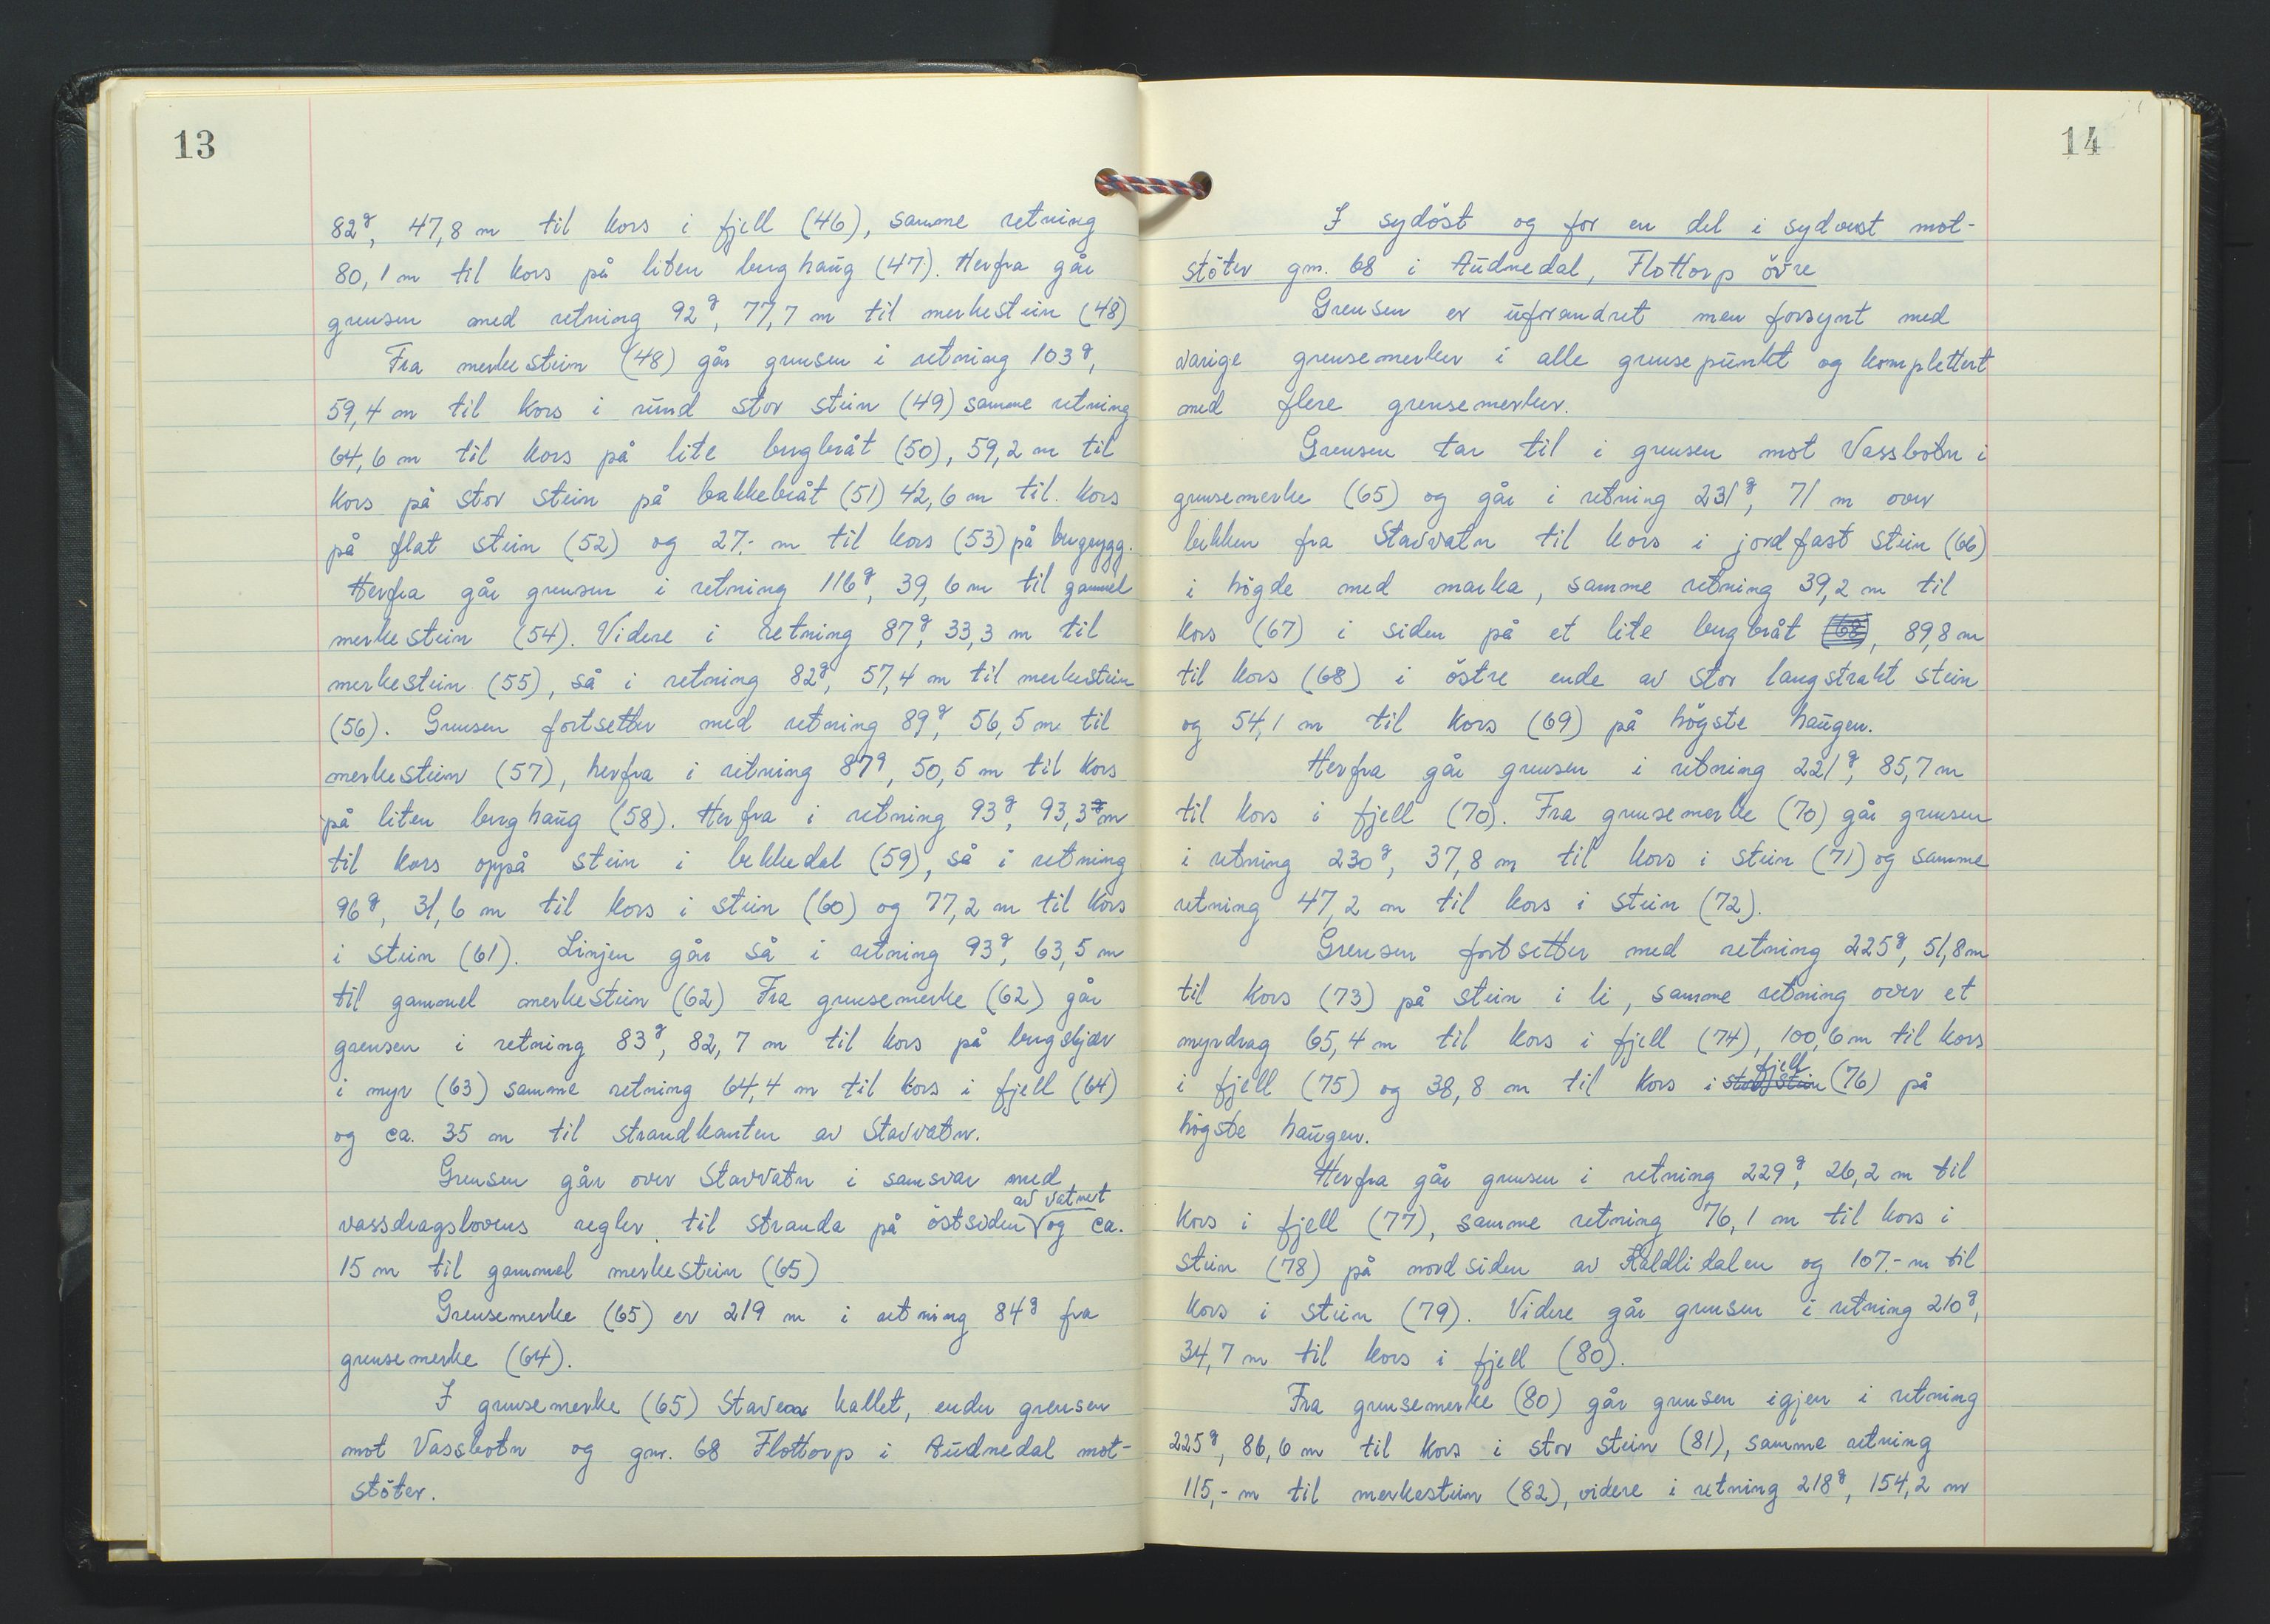 13
82g, 47,8 m til kors i fjell (46), samme retning
80,1 m til kors på liten berghaug (47). Herfra går
grensen med retning 92g, 77,7 m til merkestein (48)
Fra merkestein (48) går grensen i retning 103g,
59,4 m til kors i rund stor stein (49) samme retning
64,6 m til kors på lite bergbråt (50), 59,2 m til
kors på stor stein på bakkebråt (51) 42,6 m til kors
på flat stein (52) og 27,- m til kors (53) på bergrygg.
Herfra går grensen i retning 116g, 39,6 m til gammel
merkestein (54). Videre i retning 87g, 33,3 m til
merkestein (55), så i retning 82g, 57,4 m til merkestein
(56). Grensen fortsetter med retning 89g, 56,5 m til
merkestein (57), herfra i retning 87g, 50,5 m til kors
på liten berghaug (58). Herfra i retning 93g, 93,3 m
til kors oppå stein i bekkedal (59), så i retning
96g, 31,6 m til kors i stein (60) og 77,2 m til kors
i stein (61). Linjen går så i retning 93g, 63,5 m
til gammel merkestein (62) Fra grensemerke (62) går
grensen i retning 83g, 82,7 m til kors på bergskjær
i myr (63) samme retning 64,4 m til kors i fjell (64)
og ca. 35 m til strandkanten av Stavvatn.
Grensen går over Stavvatn i samsvar med
av vatnet
vassdragslovens regler til stranda på östsiden og ca.
15 m til gammel merkestein (65)
Grensemerke (65) er 219 m i retning 84g fra
grensemerke (64).
I grensemerke (65) kallet, ender grensen
mot Vassbotn og gnr. 68 Flottorp i Audnedal mot-
stöter.
14
I sydöst og for en del i sydvest mot-
stöter gnr. 68 i Audnedal, Flottorp övre
Grensen er uforandret men forsynt med
varige grensemerker i alle grensepunkt og komplettert
med flere grensemerker.
Grensen tar til i grensen mot Vassbotn i
grensemerke (65) og går i retning 231g, 71 m over
bekken fra Stavvatn til kors i jordfast stein (66)
i högde med marka, samme retning 39,2 m til
kors (67) i siden på et lite bergbråt (68), 89,8 m
til kors (68) i östre ende av stor langstrakt stein
og 54,1 m til kors (69) på högste haugen.
Herfra går grensen i retning 221g, 85,7 m
til kors i fjell (70). Fra grensemerke (70) går grensen
i retning 230g, 37,8 m til kors i stein (71) og samme
retning 47,2 m til kors i stein (72).
Grensen fortsetter med retning 225g, 51,8 m
til kors (73) på stein i li, samme retning over et
myrdrag 65,4 m til kors i fjell (74), 100,6 m til kors
fjell
i fjell (75) og 38,8 m til kors i stor stein (76) på
högste haugen.
Herfra går grensen i retning 229g, 26,2 m til
kors i fjell (77), samme retning 76,1 m til kors i
stein (78) på nordsiden av Kaldlidalen og 107,- m til
kors i stein (79). Videre går grensen i retning 210g,
34,7 m til kors i fjell (80).
Fra grensemerke (80) går grensen igjen i retning
225g, 86,6 m til kors i stor stein (81), samme retning
115,- m til merkestein (82), videre i retning 218g, 154,2 m